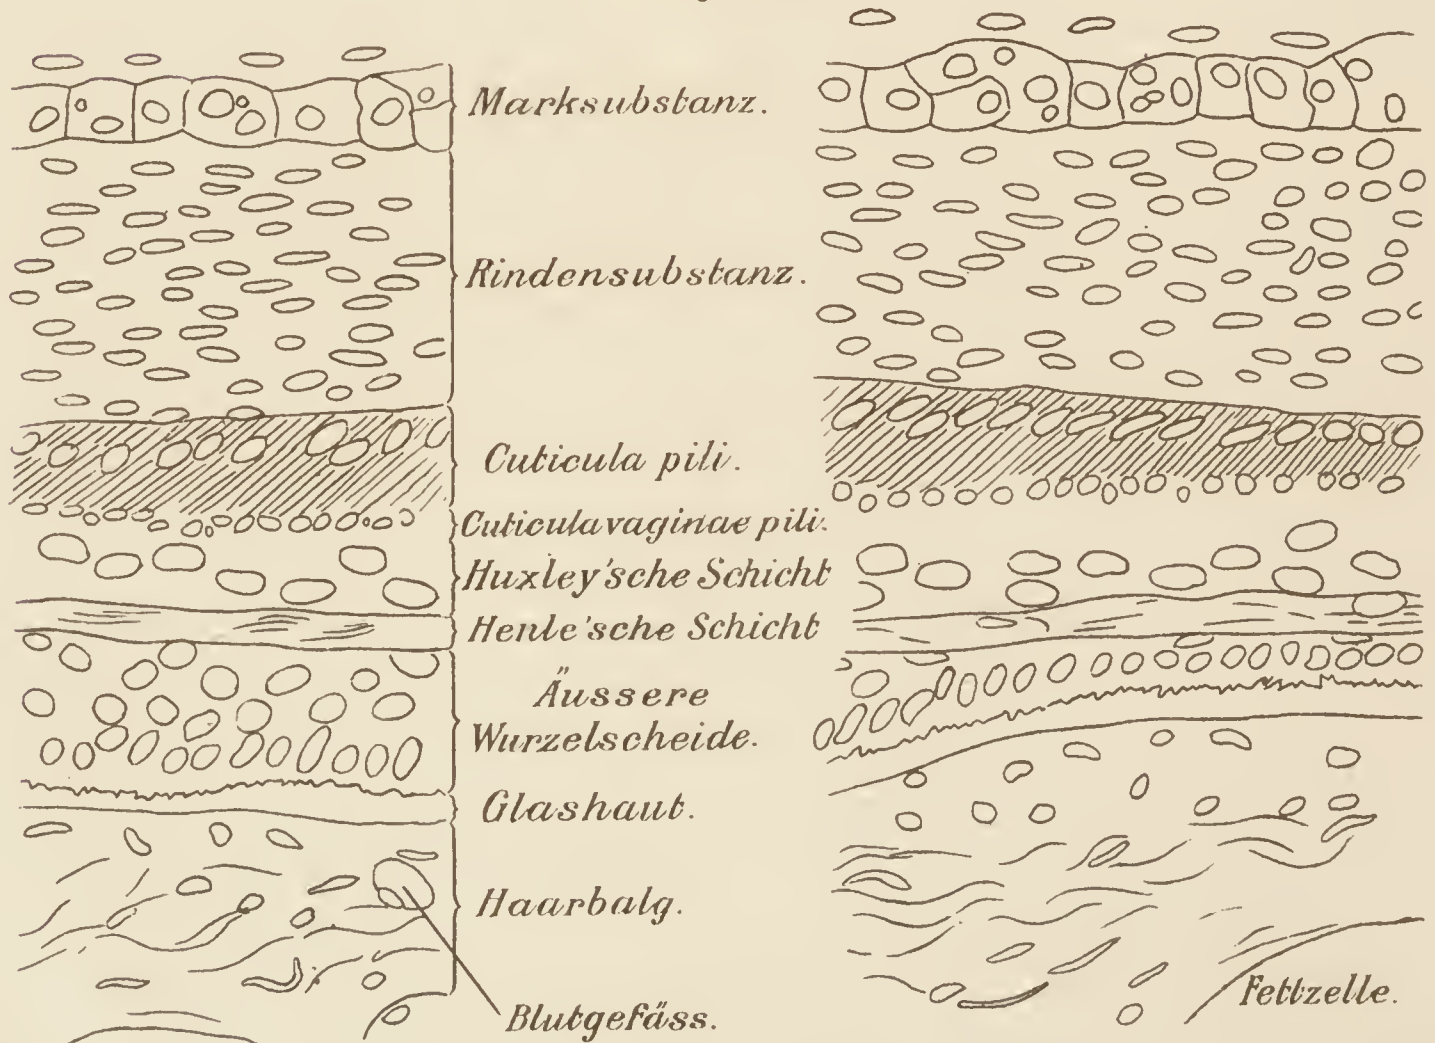 Marksubstanz.
Rindensubstanz.
Cuticula pili.
Cuticula vaginae pili.
Huxley'sche Schicht
Henle'sche Schicht
Äussere
Wurzelscheide.
Glashaut.
Haarbalg.
Blutgefäss.
Fettzelle.